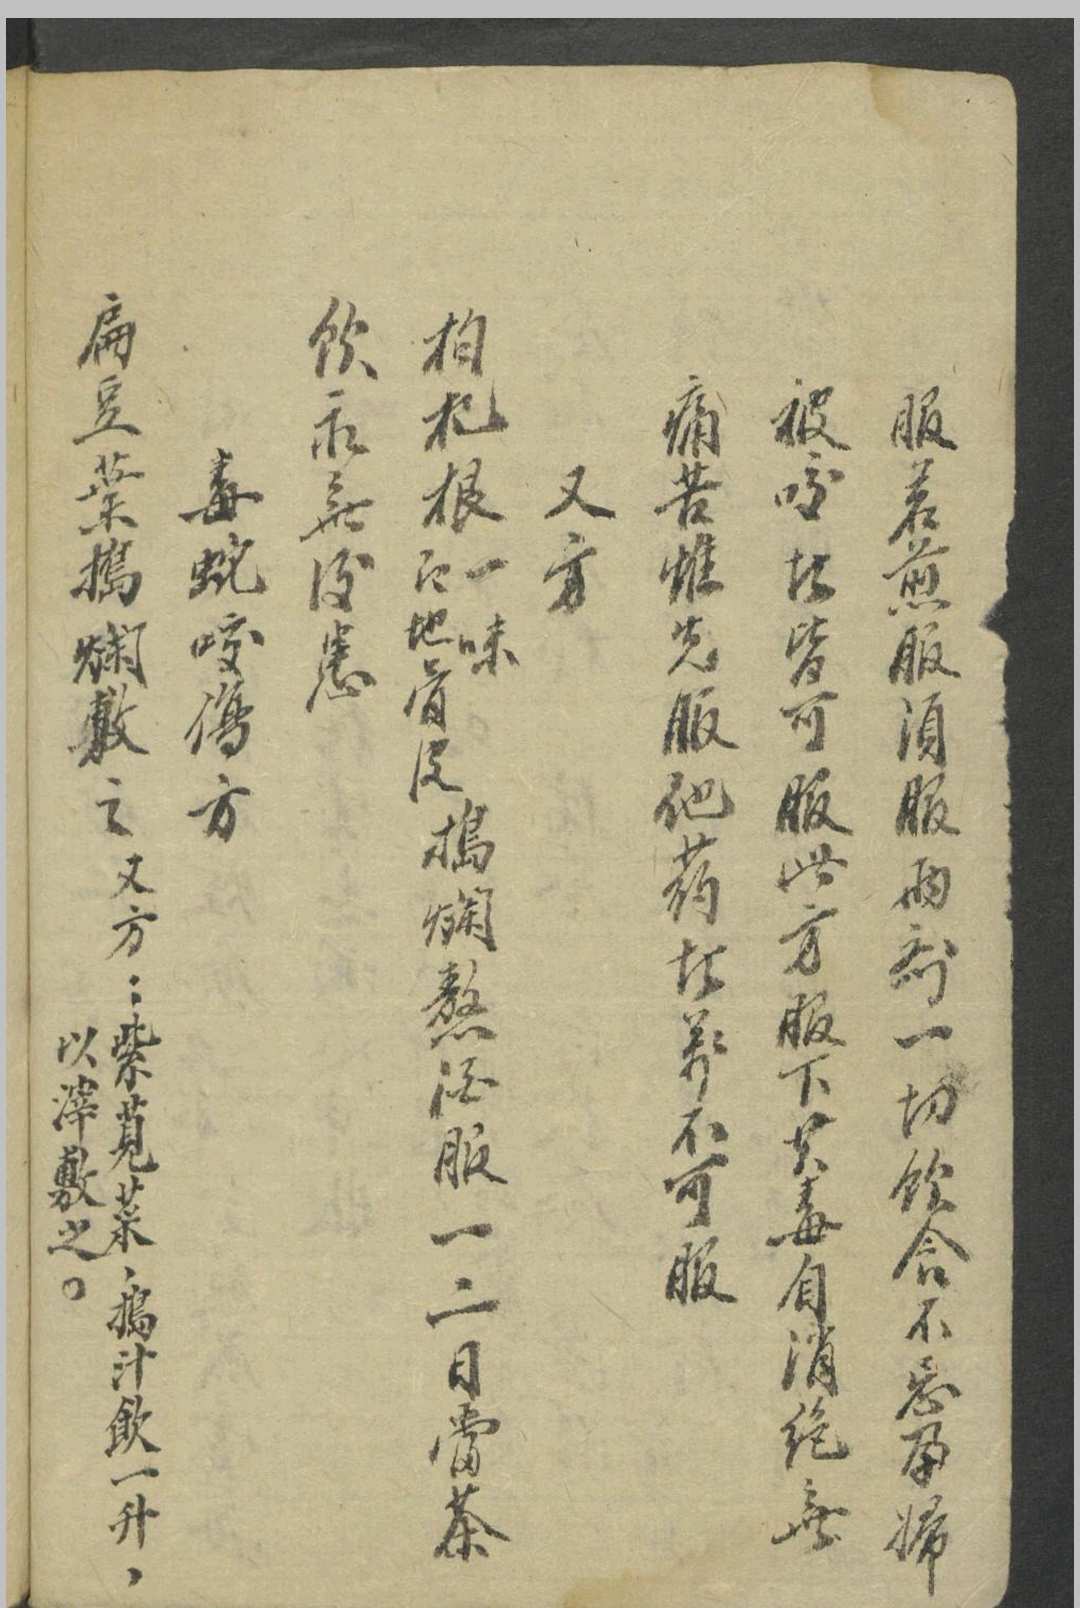 服若煎服須服両劑一切飲食不忌孕婦
被咬者皆可服此方服下其毒自消絶無
痛苦惟先服他药者萬不可服
又方
枸杞根一味
即地骨皮
搗爛熬酒服一二日當茶
飲永無後患
毒蛇咬傷方
扁豆葉搗爛敷之又方：紫莧菜、搗汁飲一升，
以滓敷之。